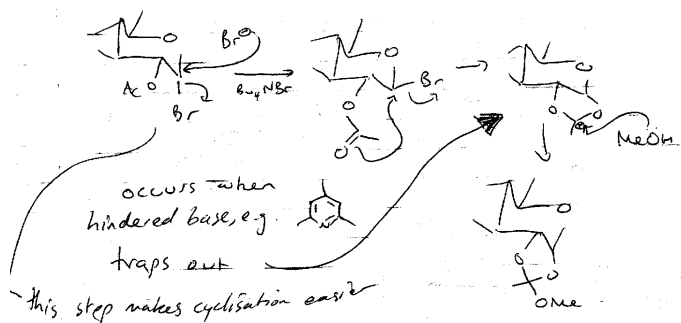 Br⊖
O
AcO
Br
Bu4NBr
O
Br
O
O
O
O
O
⊕
MeOH
occurs when
hindered base, e.g.
N
traps out
this step makes cyclisation easier
O
O
O
OMe